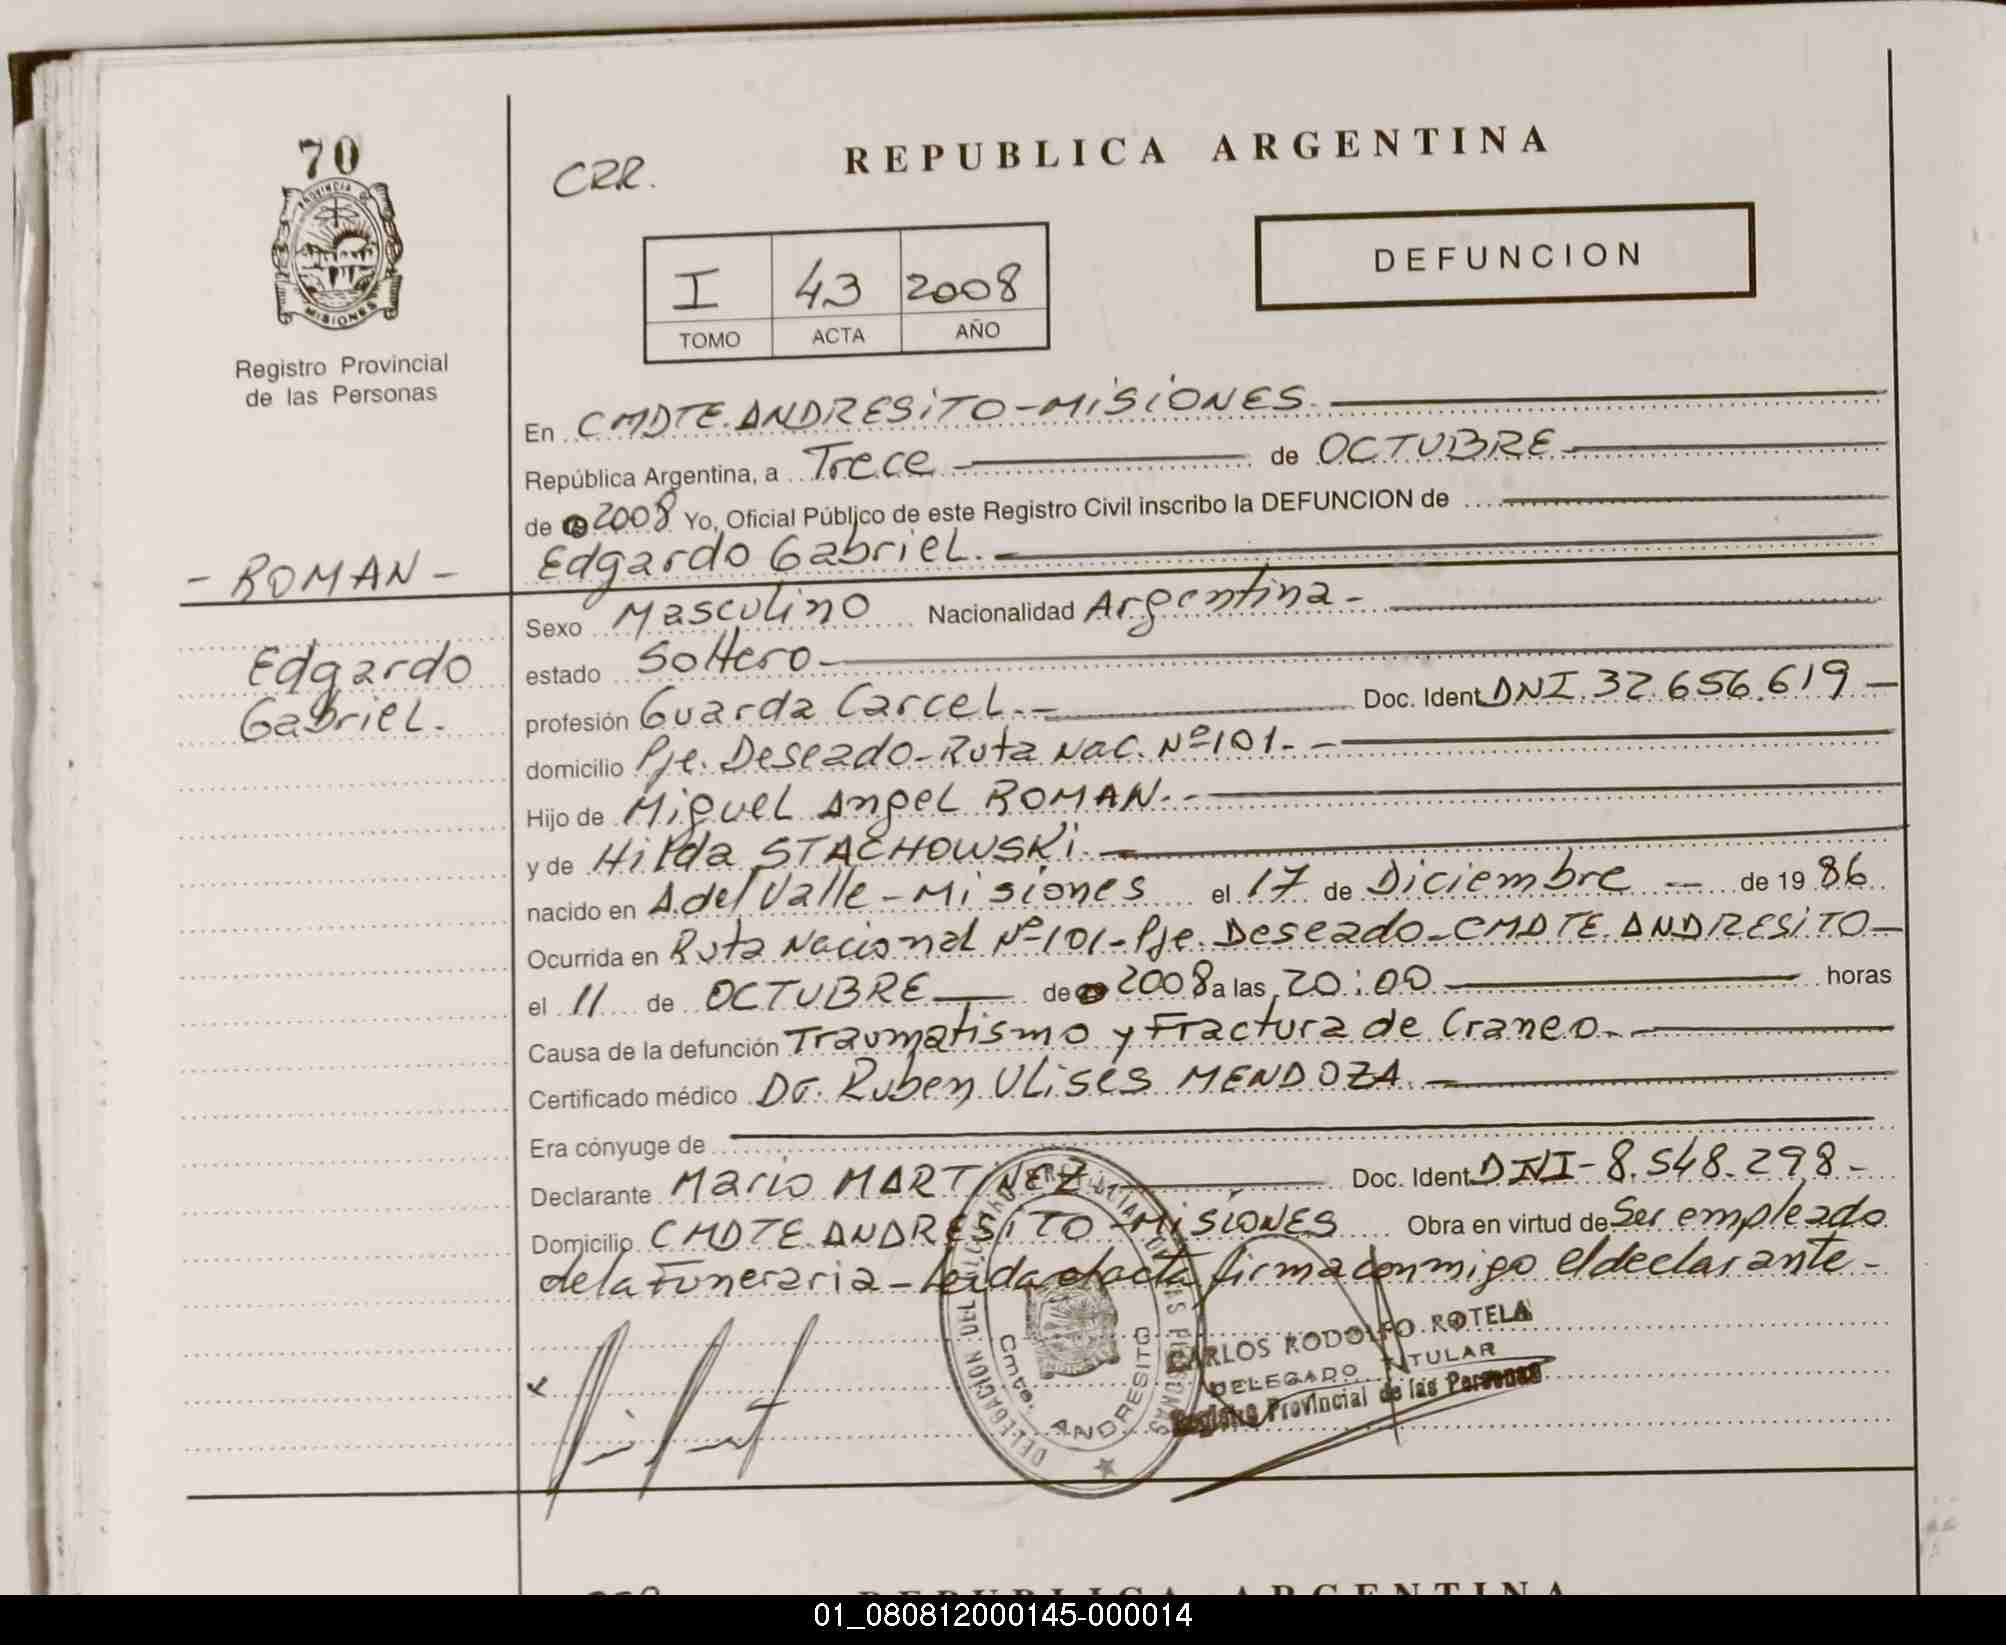 70
CRR.
REPUBLICA ARGENTINA
PROVINCIA DE
MISIONES
Registro Provincial
de las Personas
DEFUNCION
I 43 2008
TOMO ACTA AÑO
En CMDTE. ANDRESITO - MISIONES.
República Argentina, a Trece de OCTUBRE
de 2008 Yo, Oficial Público de este Registro Civil inscribo la DEFUNCION de
- ROMAN - Edgardo Gabriel.
Edgardo
Gabriel.
Sexo Masculino Nacionalidad Argentina -
estado Soltero
profesión Guarda Carcel. Doc. Ident. DNI. 32.656.619
domicilio Pje. Deseado - Ruta Nac. Nº 101.
Hijo de Miguel Angel ROMAN.
y de Hilda STACHOWSKi.
nacido en A. del Valle - Misiones el 17 de Diciembre de 19 86
Ocurrida en Ruta Nacional Nº 101 - Pje. Deseado - CMDTE. ANDRESITO
el 11 de OCTUBRE de 2008 a las 20:00 horas
Causa de la defunción Traumatismo y Fractura de Craneo.
Certificado médico Dr. Ruben Ulises MENDOZA.
Era cónyuge de
Declarante Mario MARTINEZ Doc. Ident. DNI - 8.548.298 -
Domicilio CMDTE. ANDRESITO - MISIONES Obra en virtud de Ser empleado
de la Funeraria - Leida el acta firma conmigo el declarante -
DELEGACION DEL REGISTRO PROVINCIAL DE LAS PERSONAS
Cmte. ANDRESITO
CARLOS RODOLFO ROTELA
DELEGADO TITULAR
Registro Provincial de las Personas
REPUBLICA ARGENTINA
01_080812000145-000014